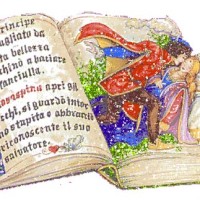 principe
tagliato da
ta bellezza
chinò a baciare
fanciulla.
aprì gli
cchi, si guardò intor
no stupita e abbracciò
riconoscente il suo
salvatore.